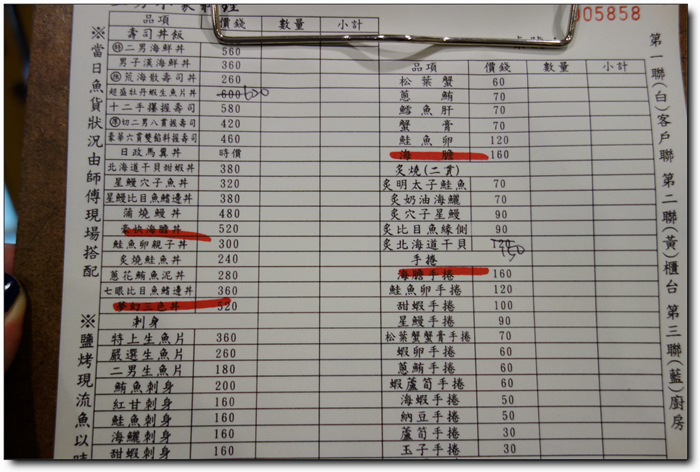 005858
品項 價錢 數量 小計
壽司丼飯
二男海鮮丼 560
男子漢海鮮丼 360
荒海散壽司丼 260
超盛牡丹蝦生魚片丼 600 600
十二手攥握壽司 580
切二男八貫握壽司 420
豪華六貫雙鮨料握壽司 460
日政馬翼丼 時價
北海道干貝甜蝦丼 380
星鰻穴子魚丼 320
星鰻比目魚鰭邊丼 380
蒲燒鰻丼 480
豪快海膽丼 520
鮭魚卵親子丼 300
炙燒鮭魚丼 240
蔥花鮪魚泥丼 280
七眼比目魚鰭邊丼 360
夢幻三色丼 520
刺身
特上生魚片 360
嚴選生魚片 260
二男生魚片 180
鮪魚刺身 200
紅甘刺身 160
鮭魚刺身 160
海鱺刺身 160
甜蝦刺身 160
品項 價錢 數量 小計
松葉蟹 60
蔥鮪 70
鱈魚肝 70
蟹膏 70
鮭魚卵 120
海膽 160
炙燒(二貫)
炙明太子鮭魚 70
炙奶油海鱺 70
炙穴子星鰻 90
炙比目魚緣側 90
炙北海道干貝 120 150
手捲
海膽手捲 160
鮭魚卵手捲 120
甜蝦手捲 100
星鰻手捲 90
松葉蟹蟹膏手捲 70
蝦卵手捲 60
蔥鮪手捲 60
蝦蘆筍手捲 60
海蝦手捲 50
納豆手捲 50
蘆筍手捲 30
玉子手捲 30
※當日魚貨狀況由師傅現場搭配
※鹽烤現流魚以時
第一聯(白)客戶聯 第二聯(黃)櫃台 第三聯(藍)廚房